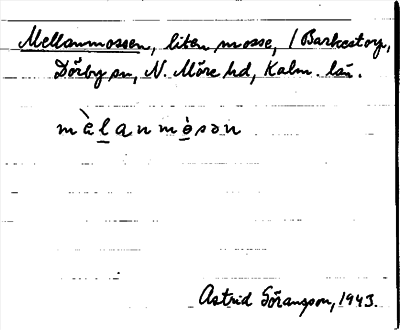 Mellanmossen, liten mosse, i Barkestorp,
Dörby sn, N. Möre hd, Kalm. län.
mèlanmòsən
Astrid Göransson, 1943.